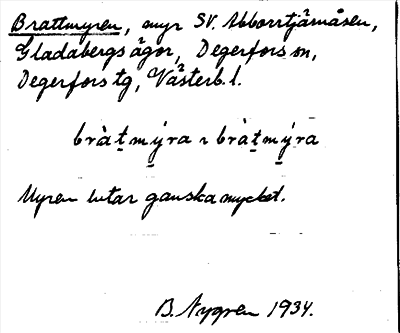 Brattmyren, myr SV. Abborrtjärnåsen,
Gladabergs ägor, Degerfors sn,
Degerfors tg, Västerb. l.
bràt̠mýra ~ bràt̠mýra
Myren lutar ganska mycket.
B. Nygren 1934.